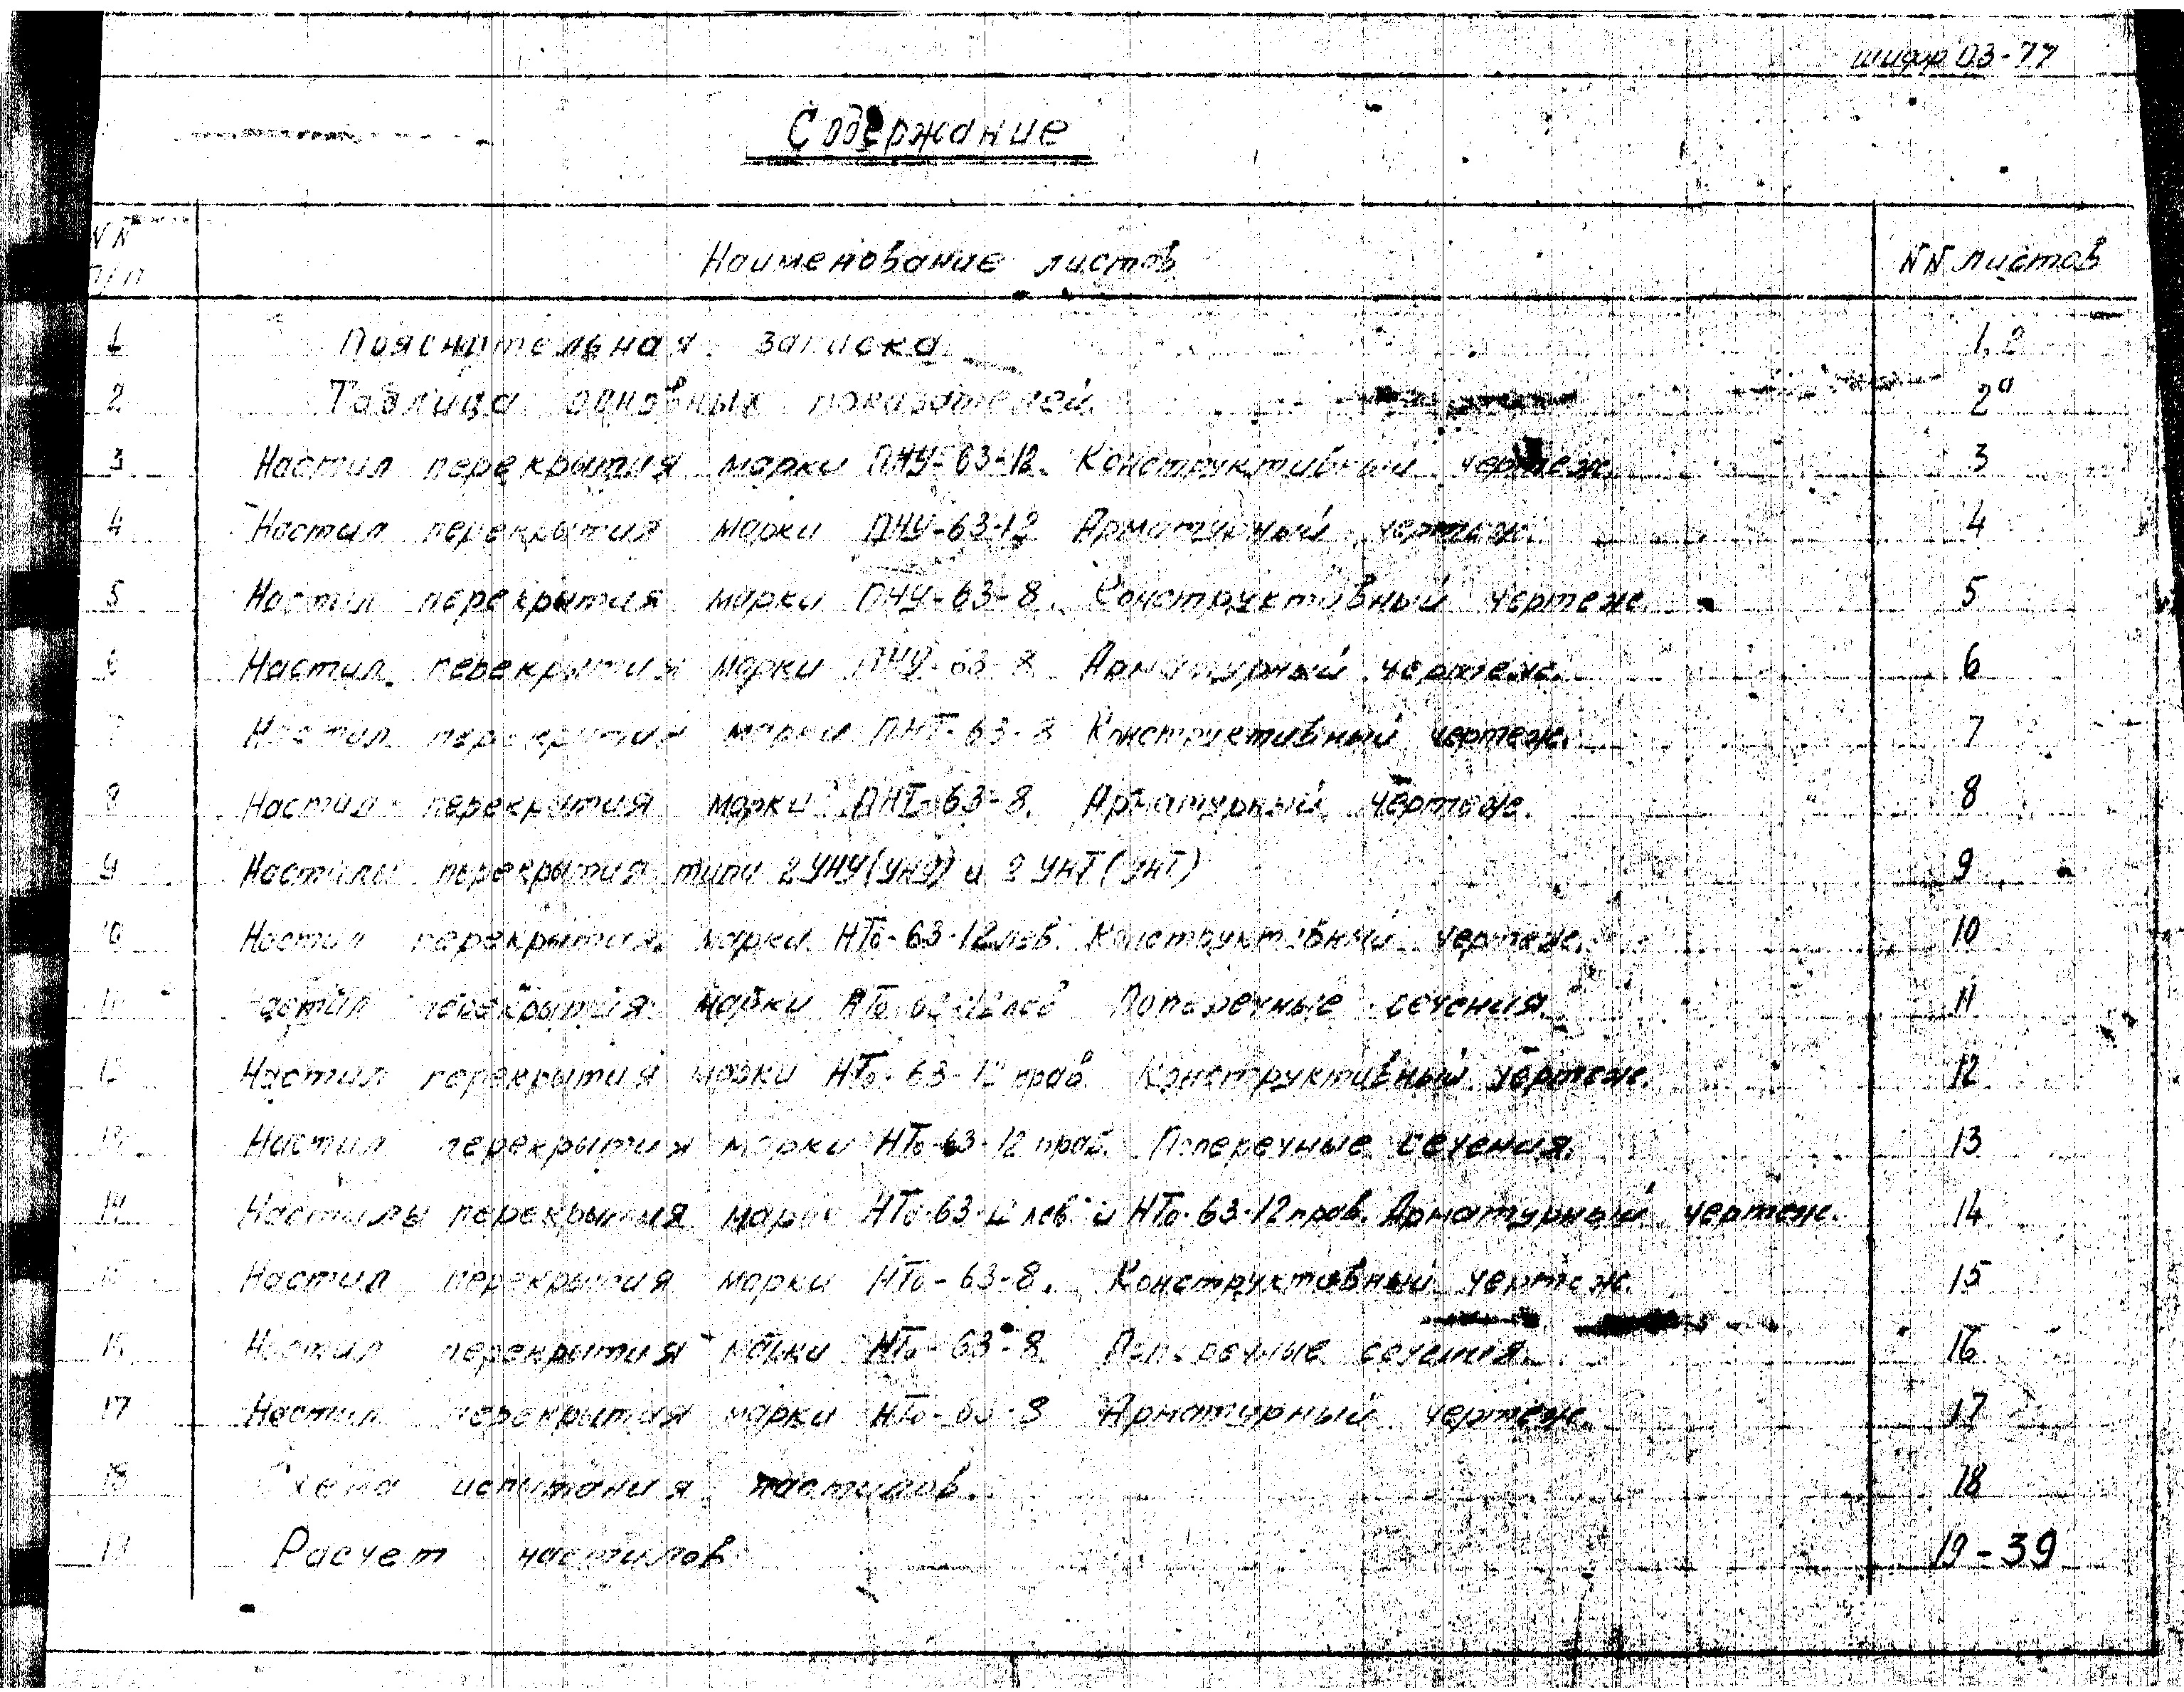 шифр 03-77
Содержание
NN
п/п
Наименование листов
NN листов
1 Пояснительная записка 1,2
2 Таблица основных показателей. 2а
3 Настил перекрытия марки ПНУ-63-12. Конструктивный чертеж. 3
4 Настил перекрытия марки ПНУ-63-12 Арматурный чертеж. 4
5 Настил перекрытия марки ПНУ-63-8. Конструктивный чертеж. 5
6 Настил перекрытия марки ПНУ-63-8 Арматурный чертеж. 6
7 Настил перекрытия марки ПНТ-63-8 Конструктивный чертеж. 7
8 Настил перекрытия марки ПНТ-63-8. Арматурный чертеж. 8
9 Настилы перекрытия типа 2УНУ(УНУ) и 2УНТ(УНТ) 9
10 Настил перекрытия марки НТо-63-12лев. Конструктивный чертеж. 10
11 Настил перекрытия марки НТо-63-12лев Поперечные сечения. 11
12 Настил перекрытия марки НТо-63-12 прав. Конструктивный чертеж. 12
13 Настил перекрытия марки НТо-63-12 прав. Поперечные сечения. 13
14 Настилы перекрытия марок НТо-63-12 лев и НТо-63-12прав. Арматурный чертеж. 14
15 Настил перекрытия марки НТо-63-8. Конструктивный чертеж. 15
16 Настил перекрытия марки НТо-63-8. Поперечные сечения. 16
17 Настил перекрытия марки НТо-63-8 Арматурный чертеж. 17
18 Схема испытания настилов. 18
19 Расчет настилов 19-39